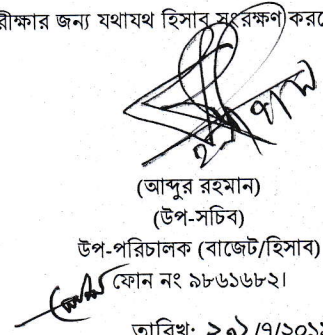 রীক্ষার জন্য যথাযথ হিসাব সংরক্ষণ করে
(আব্দুর রহমান)
(উপ-সচিব)
উপ-পরিচালক (বাজেট/হিসাব)
ফোন নং ৯৮৬১৬৮২।
তারিখ: